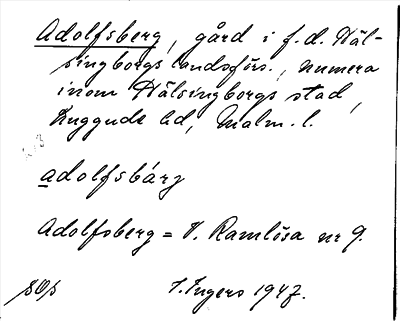 Adolfsberg, gård i f.d. Häl-
singborgs landsförs., numera
inom Hälsingborgs stad,
Luggude hd, Malm. l.
adolfsbárj
Adolfsberg = V. Ramlösa nr 9.
I. Ingers 1947.